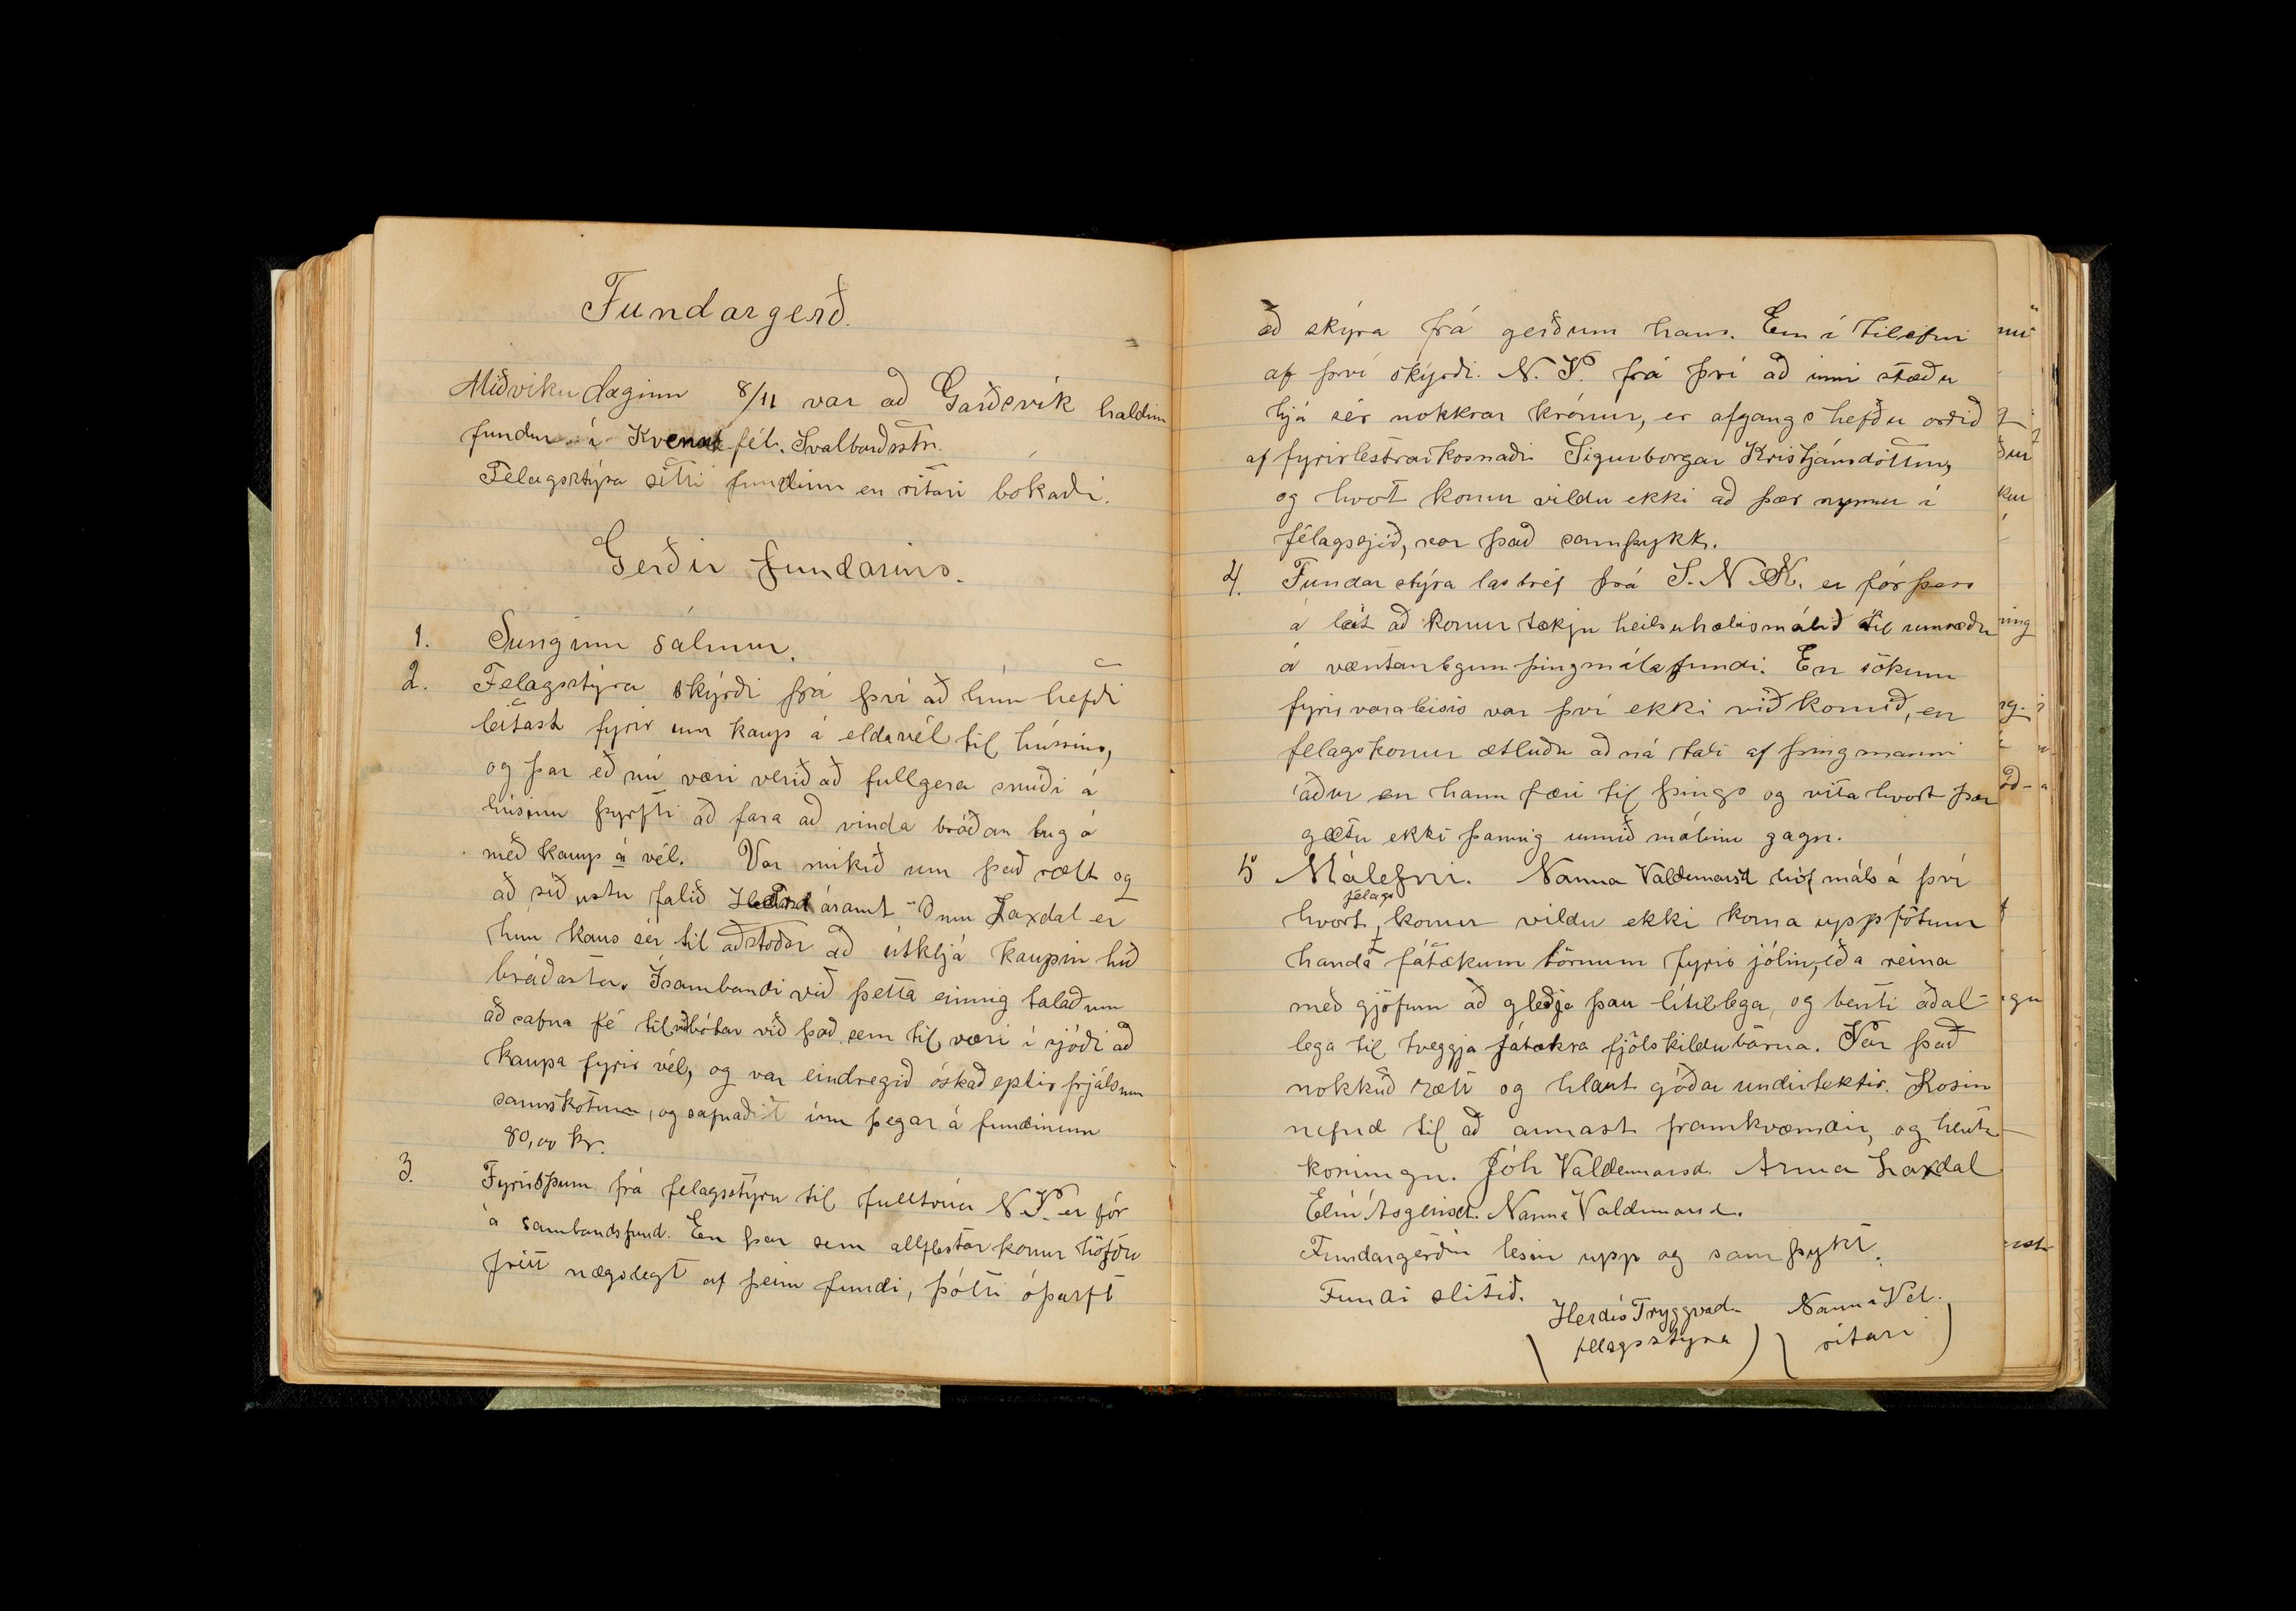 Fundargerð.
Miðvikudaginn 8/11 var að Garðsvík haldinn
fundur í Kvenfél. Svalbarðsstr.
Félagsstýra setti fundinn en ritari bókaði.
Gerðir fundarins.
1. Sunginn sálmur.
2. Felagsstýra skýrði frá því að hún hefði
leitast fyrir um kaup á eldavél til hússins,
og þar eð nú væri verið að fullgera smíði á
húsinu þyrfti að fara að vinda bráðan bug á
með kaup á vél. Var mikið um það rætt og
að síðustu falið ásamt Önnu Laxdal er
hún kaus sér til aðstoðar að útkljá kaupin hið
bráðasta. Ísambandi við þetta einnig talað um
að safna fé til viðbótar við það sem til væri í sjóði að
kaupa fyrir vél, og var eindregið óskað eptir frjálsum
samskotum, og safnaðist inn þegar á fundinum
80,00 kr.
3. Fyrirspurn frá felagsstýru til fulltrúa N.V. er fór
á sambandsfund. En þar sem allflestar konur höfðu
frétt nægslegt af þeim fundi, þótti óþarft
að skýra frá gerðum hans. En í tilefni
af því skýrði N.V. frá því að inni stæðu
hjá sér nokkrar krónur, er afgangs hefðu orðið
af fyrirlestrarkosnaði Sigurborgar Kristjánsdóttur,
og hvort konur vildu ekki að þær rynnu í
félagssjóð, var það samþykk.
4. Fundarstýra las bréf frá S.N.K. er fór þess
á leit að konur tækju heilsuhælismálið til umræðu
á væntanlegum þingmálafundi. En sökum
fyrirvaraleisis var því ekki við komið, en
felagskonur ætluðu að ná tali af þingmanni
áður en hann færi til þings og vita hvort þær
gætu ekki þannig unnið málinu gagn.
5 Málefni. Nanna Valdemarsd hóf máls á því
hvort felags konur vildu ekki koma upp fötum
handa fátækum börnum fyrir jólin, eða reina
með gjöfum að gleðja þau lítillega, og benti aðal-
lega til tveggja fátækra fjölskildubarna. Var það
nokkuð rætt og hlaut góðar undirtektir. Kosin
nefnd til að annast framkvæmdir, og hlutu
koningu. Jóh Valdemarsd. Anna Laxdal
Elín Ásgeirsd. Nanna Valdemarsd.
Fundargerðin lesin upp og samþykt.
Fundi slitið.
Herdís Tryggvad. Nanna Vd.
(felagsstýra) (ritari)